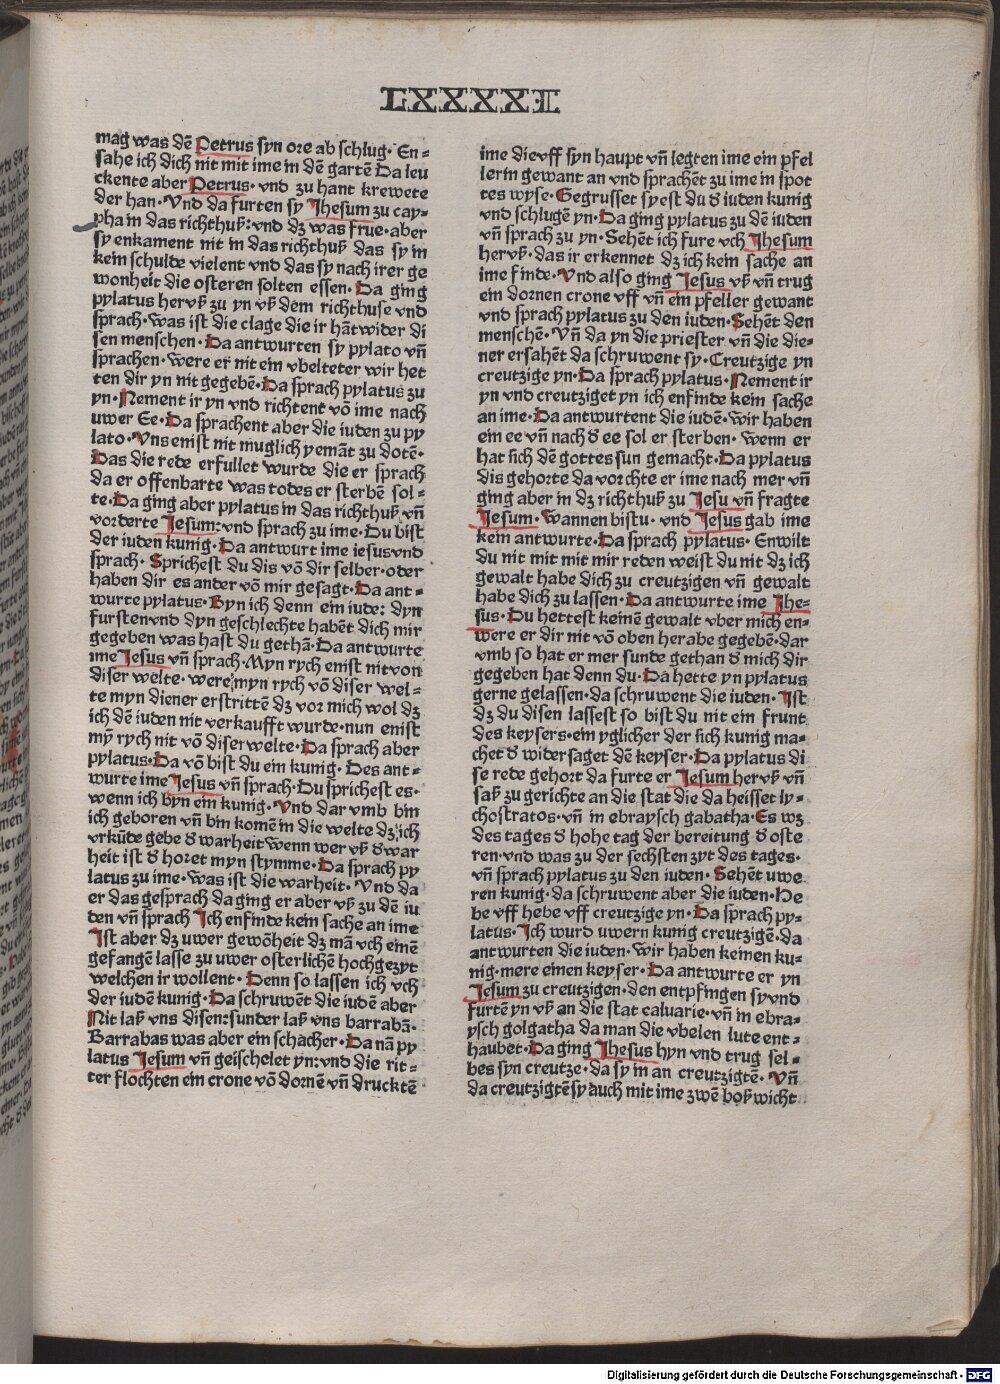 LXXXXXI
mag was dē Petrus syn ore ab schlug· En⸗
sahe ich dich nit mit ime in dē gartē Da leu
ckente aber Petrus· vnd zu hant krewete
der han· Vnd da furten sy Jhesum zu cay⸗
pha in das richthuß: vnd dz was frue· aber
sy enkament nit in das richthuß das sy in
kein schulde vielent vnd das sy nach irer ge
wonheit die osteren solten essen· Da ging
pylatus hervß zu yn vß dem richthuse vnd
sprach· was ist die clage die ir hāt wider di
sen menschen· Da antwurten sy pylato vn̄
sprachen· were er nit ein vbelteter wir het
ten dir yn nit gegebē· Da sprach pylatus zu
yn· Nement ir yn vnd richtent vō ime nach
uwer Ee· Da sprachent aber die iuden zu py
lato· Vns enist nit muglich yemāt zu dotē·
Das die rede erfullet wurde die er sprach
da er offenbarte was todes er sterbē sol⸗
te· Da ging aber pylatus in das richthuß vn̄
vorderte Jesum: vnd sprach zu ime· Du bist
der iuden kunig· Da antwurt ime iesus vnd
sprach· Sprichest du dis vō dir selber· oder
haben dir es ander vō mir gesagt· Da ant⸗
wurte pylatus· Byn ich denn ein iude: dyn
fursten vnd dyn geschlechte habēt dich mir
gegeben was hast du gethā· Da antwurte
ime Jesus vn̄ sprach· Myn rych enist nit von
diser welte· were myn rych vō diser wel⸗
te myn diener erstrittē dz vor mich wol dz
ich dē iuden nit verkaufft wurde· nun enist
mȳ rych nit vō diser welte· Da sprach aber
pylatus· Da vō bist du ein kunig· Des ant⸗
wurte ime Jesus vn̄ sprach· Du sprichest es·
wenn ich byn ein kunig· Vnd dar vmb bin
ich geboren vn̄ bin komē in die welte dz ich
vrkūde gebe d warheit wenn wer vß d war
heit ist d horet myn stymme· Da sprach py
latus zu ime· was ist die warheit· Vnd da
er das gesprach da ging er aber vß zu dē iu
den vn̄ sprach Ich enfinde kein sache an ime
Ist aber dz uwer gewōheit dz mā vch einē
gefangē lasse zu uwer osterlichē hochgezyt
welchen ir wollent· Denn so lassen ich vch
der iudē kunig· Da schruwēt die iudē aber
Nit laß vns disen: sunder laß vns barrabā·
Barrabas was aber ein schacher· Da nā py
latus Jesum vn̄ geischelet yn: vnd die rit⸗
ter flochten ein crone vō dornē vn̄ drucktē
ime die vff syn haupt vn̄ legten ime ein pfel
lerin gewant an vnd sprachēt zu ime in spot
tes wyse· Gegrusset syest du d iuden kunig
vnd schlugē yn· Da ging pylatus zu dē iuden
vn̄ sprach zu yn· Sehēt ich fure vch Jhesum
hervß· das ir erkennet dz ich kein sache an
ime finde· Vnd also ging Jesus vß vn̄ trug
ein dornen crone vff vn̄ ein pfeller gewant
vnd sprach pylatus zu den iuden· Sehēt den
menschē· Vn̄ da yn die priester vn̄ die die⸗
ner ersahēt da schruwent sy· Creutzige yn
creutzige yn· Da sprach pylatus· Nement ir
yn vnd creutziget yn ich enfinde kein sache
an ime· Da antwurtent die iudē· wir haben
ein ee vn̄ nach d ee sol er sterben· wenn er
hat sich dē gottes sun gemacht· Da pylatus
dis gehorte da vorchte er ime nach mer vn̄
ging aber in dz richthuß zu Jesu vn̄ fragte
Jesum· Wannen bistu· vnd Jesus gab ime
kein antwurte· Da sprach pylatus· Enwilt
du nit mit mit mir reden weist du nit dz ich
gewalt habe dich zu creutzigen vn̄ gewalt
habe dich zu lassen· Da antwurte ime Jhe⸗
sus· Du hettest keinē gewalt vber mich en⸗
were er dir nit vō oben herabe gegebē· dar
vmb so hat er mer sunde gethan d mich dir
gegeben hat denn du· Da hette yn pylatus
gerne gelassen· da schruwent die iuden· Ist
dz du disen lassest so bist du nit ein frunt
des keysers· ein yglicher der sich kunig ma⸗
chet d widersaget dē keyser· Da pylatus di
se rede gehort da furte er Jesum hervß vn̄
saß zu gerichte an die stat die da heisset ly⸗
chostratos· vn̄ in ebraysch gabatha· Es wz
des tages d hohe tag der bereitung d oste
ren· vnd was zu der sechsten zyt des tages·
vn̄ sprach pylatus zu den iuden· Sehēt uwe
ren kunig· da schruwent aber die iuden· He
be vff hebe vff creutzige yn· Da sprach py⸗
latus· Ich wurd uwern kunig creutzigē· da
antwurten die iuden· Wir haben keinen ku⸗
nig· mere einen keyser· Da antwurte er yn
Jesum zu creutzigen· den entpfingen sy vnd
furtē yn vß an die stat caluarie· vn̄ in ebra⸗
ysch golgatha da man die vbelen lute ent⸗
haubet· Da ging Jhesus hyn vnd trug sel⸗
bes syn creutze· da sy in an creutzigtē· Vn̄
da creutzigtē sy auch mit ime zwē boßwicht
Digitalisierung gefördert durch die Deutsche Forschungsgemeinschaft - DFG